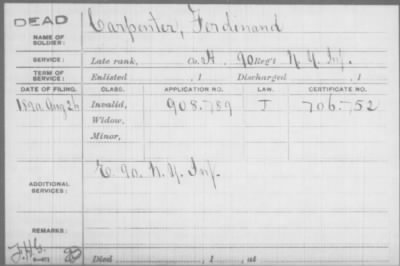 DEAD
Carpenter, Ferdinand
NAME OF SOLDIER:
SERVICE: Late rank, Co. H, 90 Reg't N. Y. Inf.
TERM OF SERVICE: Enlisted , 1 Discharged , 1
DATE OF FILING. CLASS. APPLICATION NO. LAW. CERTIFICATE NO.
1890 Aug 26 Invalid, 908.789 J 706.752
Widow,
Minor,
E. 90. N. Y. Inf.
ADDITIONAL SERVICES:
REMARKS:
Died , 1 , at